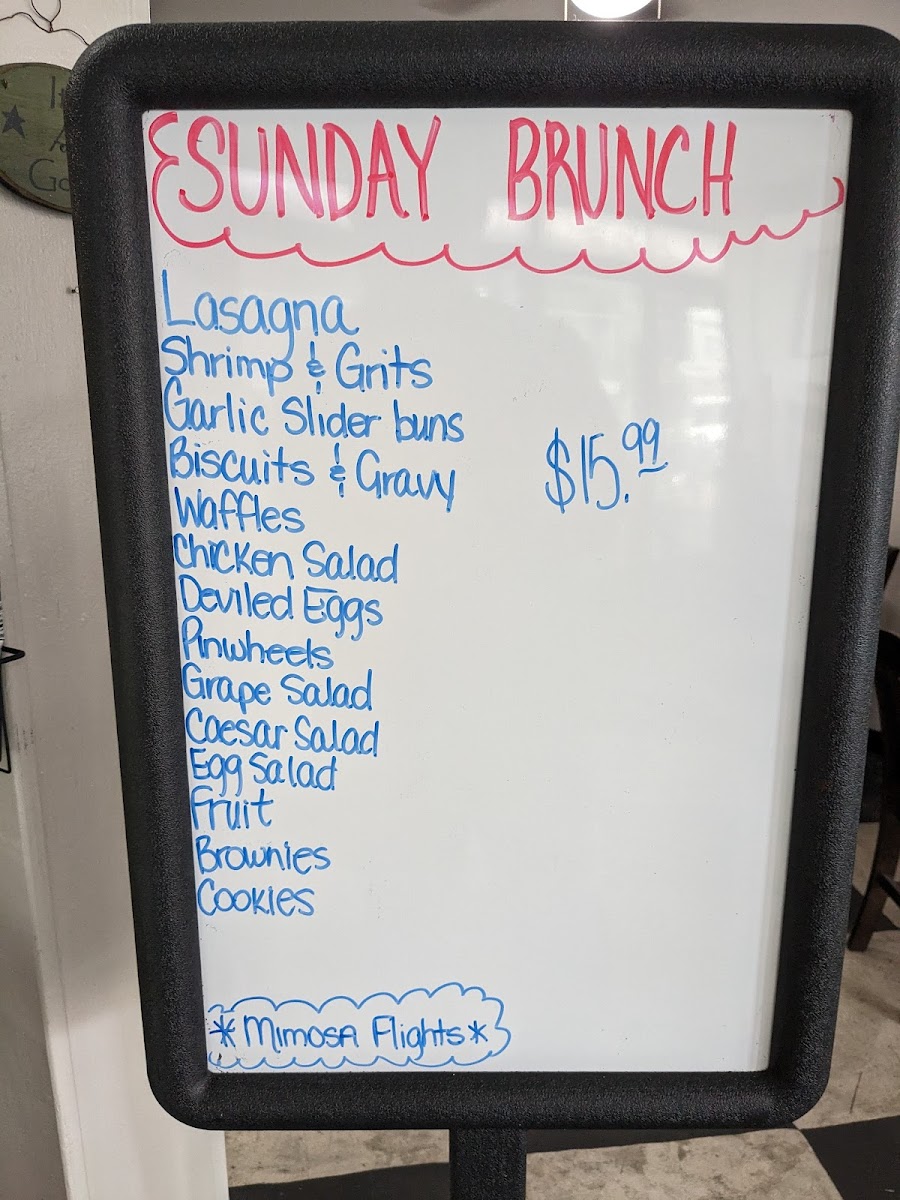 SUNDAY BRUNCH
Lasagna
Shrimp & Grits
Garlic Slider buns
Biscuits & Gravy
$15.99
Waffles
Chicken Salad
Deviled Eggs
Pinwheels
Grape Salad
Caesar Salad
Egg Salad
Fruit
Brownies
Cookies
*Mimosa Flights*